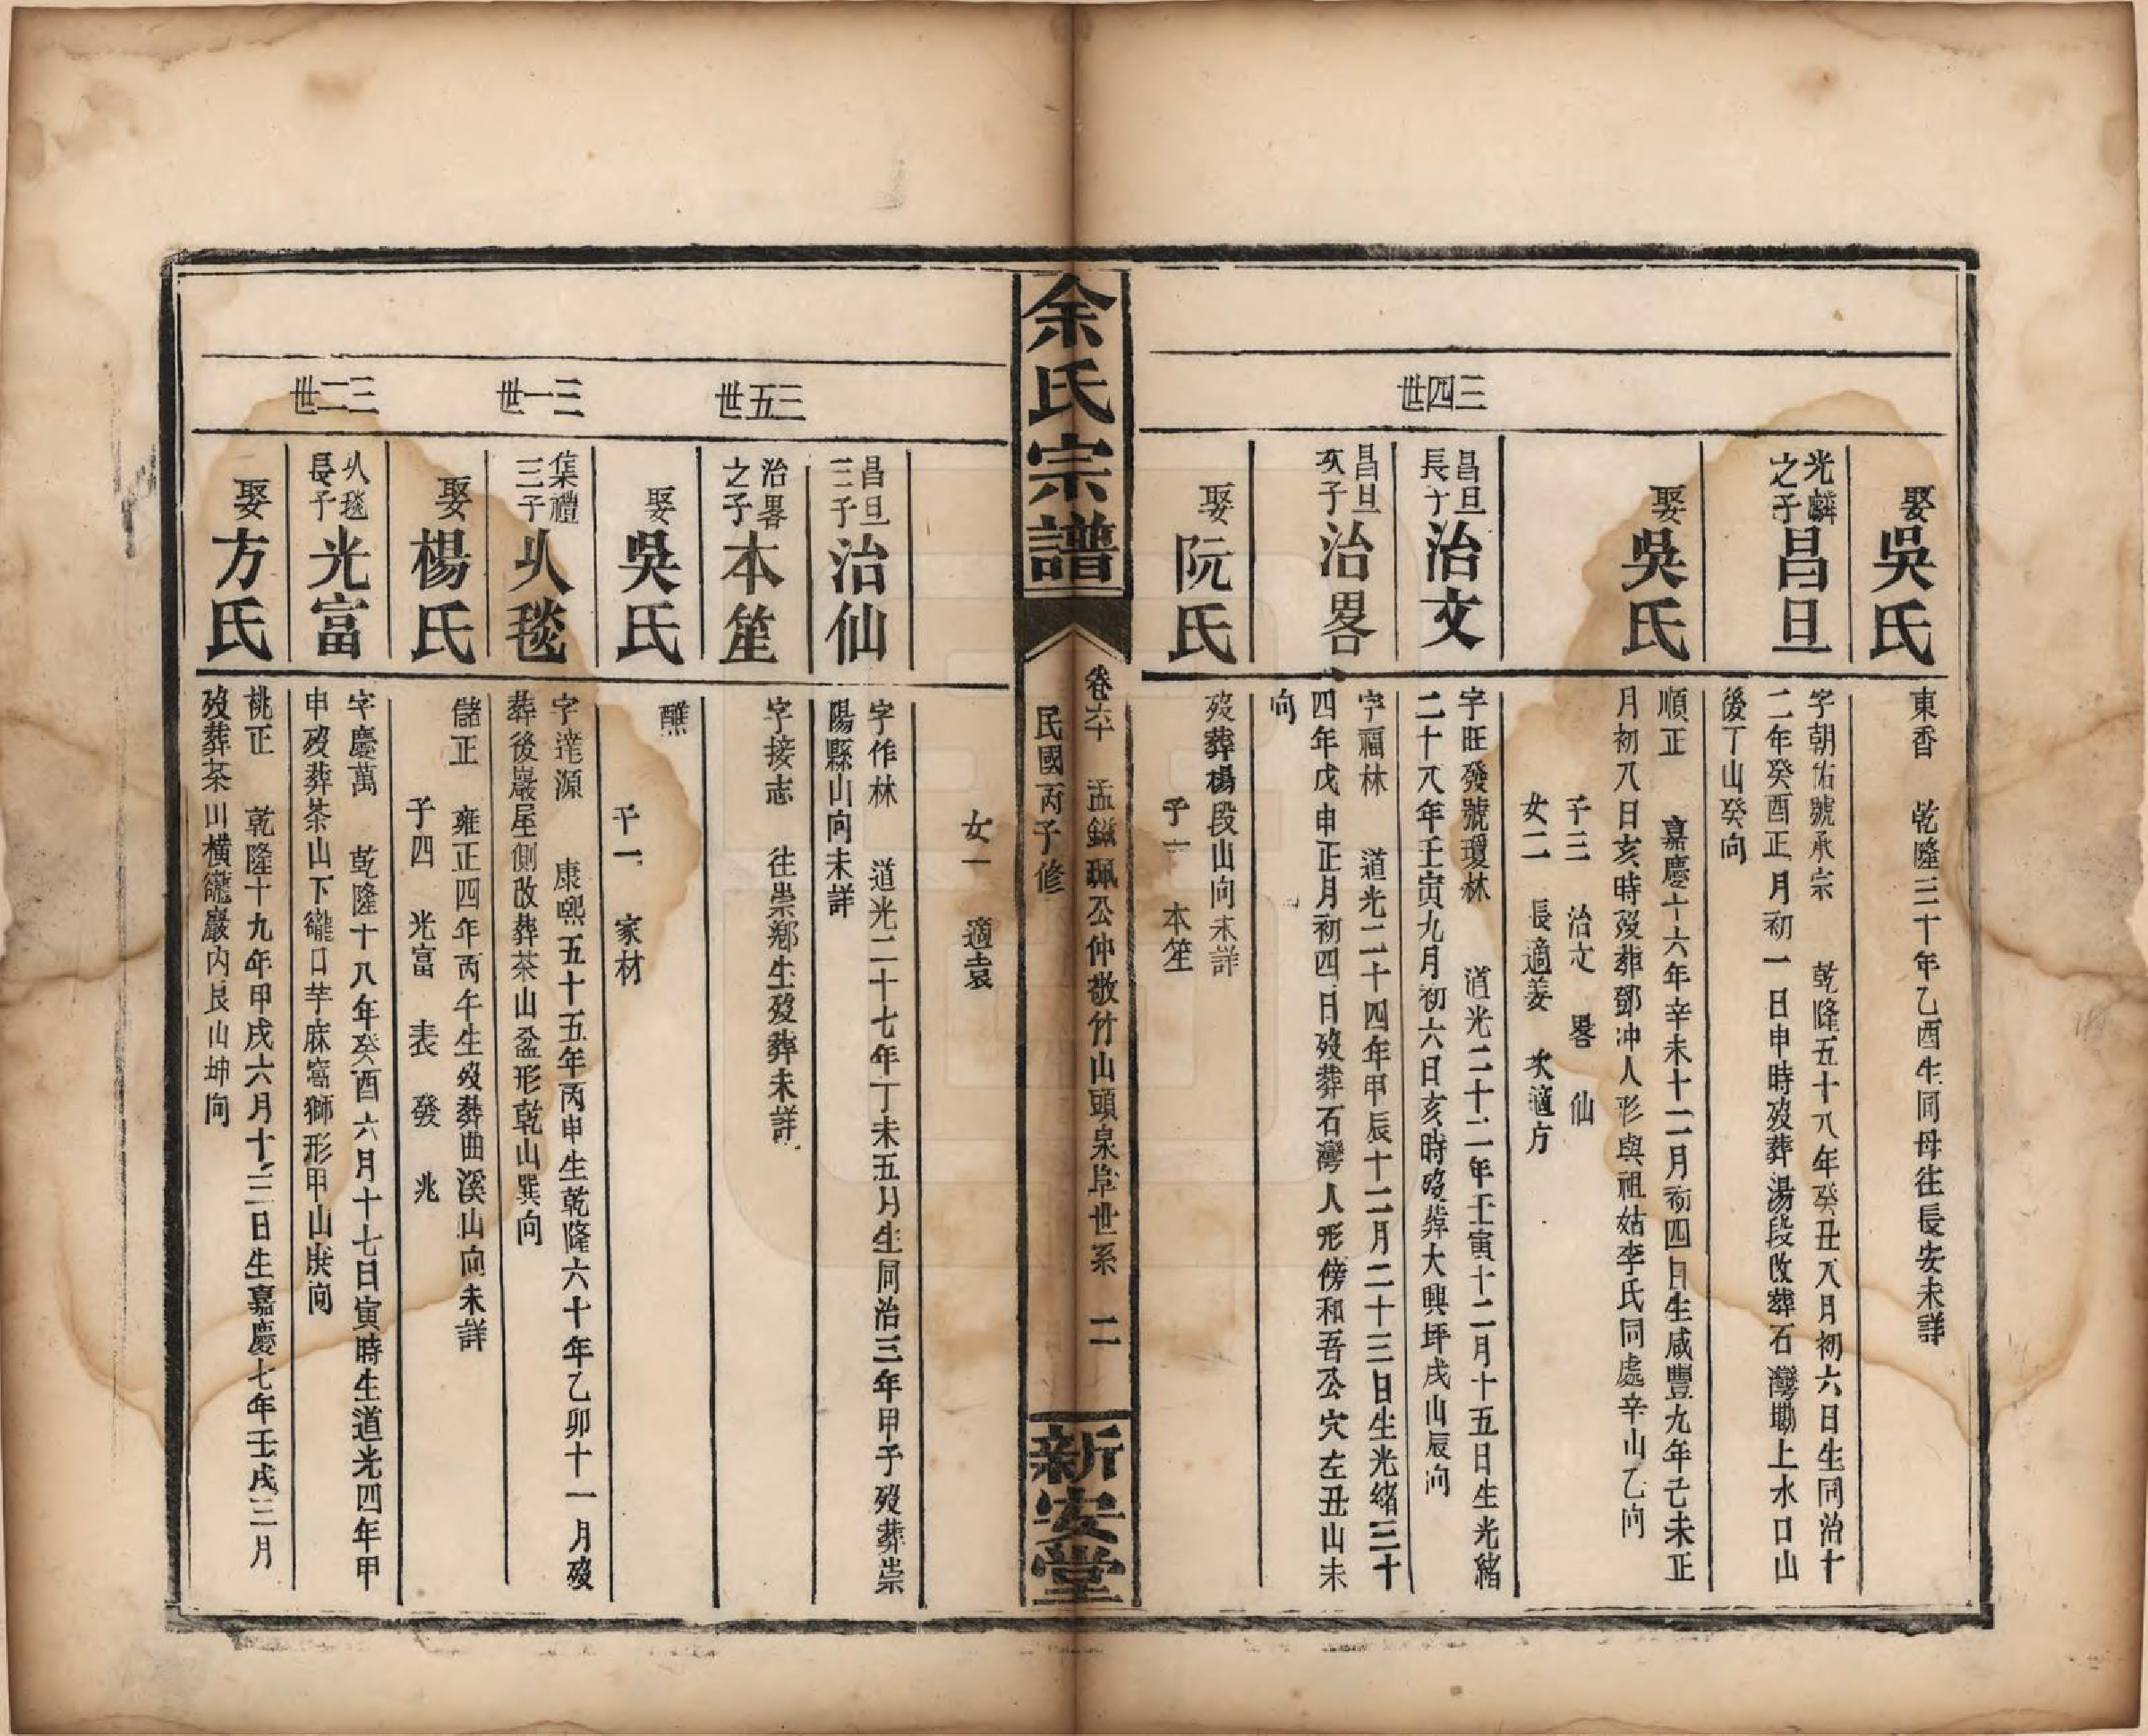 三四世
娶吳氏
東香 乾隆三十年乙酉生同母往長安未詳
光麟之子昌旦
字朝佑號承宗 乾隆五十八年癸丑八月初六日生同治十
二年癸酉正月初一日申時歿葬湯段改葬石灣塝上水口山
後丁山癸向
娶吳氏
順正 嘉慶十六年辛未十二月初四日生咸豐九年己未正
月初八日亥時歿葬鄧冲人形與祖姑李氏同處辛山乙向
子三 治文 畧 仙
女二 長適姜 次適方
昌旦長子治文
字旺發號瓊林 道光二十二年壬寅十二月十五日生光緒
二十八年壬寅九月初六日亥時歿葬大興坪戌山辰向
昌旦次子治畧
字福林 道光二十四年甲辰十二月二十三日生光緒三十
四年戊申正月初四日歿葬石灣人形傍和吾公穴左丑山未
向
娶阮氏
歿葬楊段山向未詳
子一 本笙
余氏宗譜
卷六 孟鎰珮公仲敬竹山頭泉阜世系 二
民國丙子修
新安堂
女一 適袁
昌旦三子治仙
字作林 道光二十七年丁未五月生同治三年甲子歿葬崇
陽縣山向未詳
三五世
治畧之子本笙
字接志 往崇鄉生歿葬未詳
娶吳氏
醮
子一 家材
三一世
集禮三子㕥毯
字達源 康熙五十五年丙申生乾隆六十年乙卯十一月歿
葬後巖屋側改葬茶山盆形乾山巽向
娶楊氏
儲正 雍正四年丙午生歿葬曲溪山向未詳
子四 光富 表 發 兆
三二世
㕥毯長子光富
字慶萬 乾隆十八年癸酉六月十七日寅時生道光四年甲
申歿葬茶山下巃口芋麻窩獅形甲山庚向
娶方氏
桃正 乾隆十九年甲戌六月十三日生嘉慶七年壬戌三月
歿葬茶川橫巃巖內艮山坤向